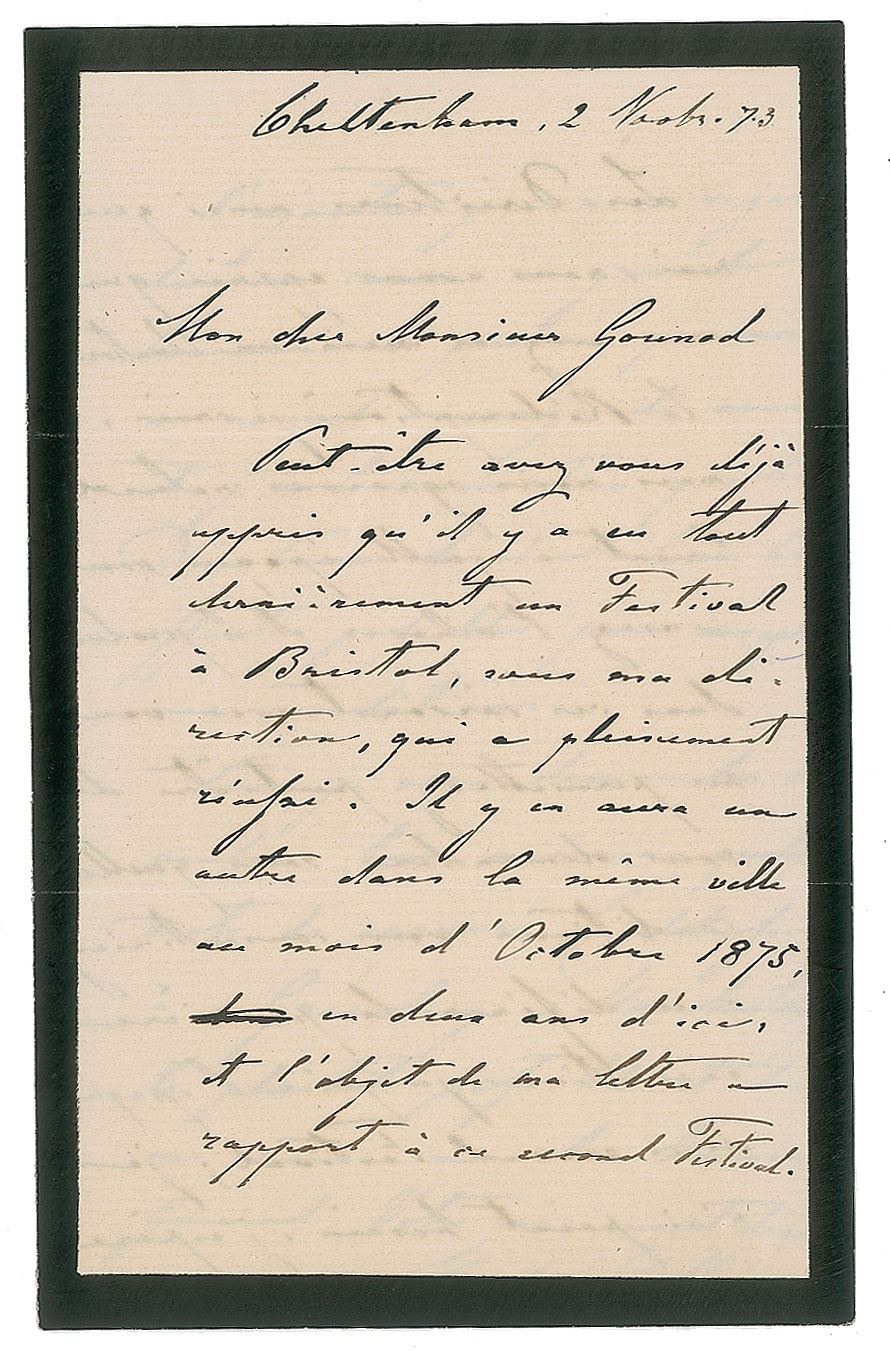 Cheltenham, 2 Novbr. 73
Mon cher Monsieur Gounod
Peut-être avez vous déjà
appris qu'il y a eu tout
dernièrement un Festival
à Bristol, sous ma di-
rection, qui a pleinement
réussi. Il y en aura un
autre dans la même ville
au mois d'Octobre 1875,
en deux ans d'ici,
et l'objet de ma lettre a
rapport à ce second Festival.